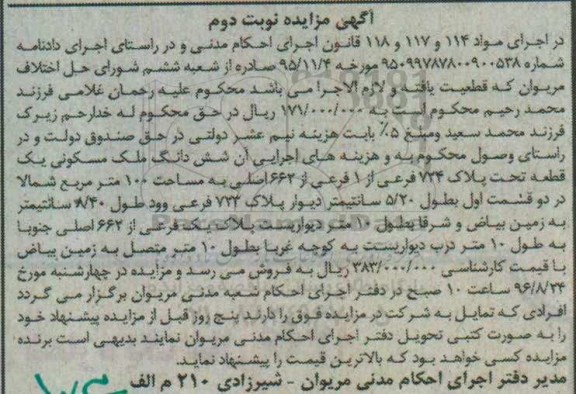 آگهی مزایده نوبت دوم
در اجرای مواد ۱۱۴ و ۱۱۷ و ۱۱۸ قانون اجرای احکام مدنی و در راستای اجرای دادنامه
شماره ۹۵۰۹۹۷۸۷۸۰۰۹۰۰۵۳۸ مورخه ۹۵/۱۱/۴ صادره از شعبه ششم شورای حل اختلاف
مریوان که قطعیت یافته و لازم الاجرا می باشد محکوم علیه رحمان غلامی فرزند
محمد رحیم محکوم است به ۱۷۱/۰۰۰/۰۰۰ ریال در حق محکوم له خدارحم زیرک
فرزند محمد سعید ومبلغ ۵٪ بابت هزینه نیم عشر دولتی در حق صندوق دولت و در
راستای وصول محکوم به و هزینه های اجرایی آن شش دانگ ملک مسکونی یک
قطعه تحت پلاک ۷۳۴ فرعی از ۱ فرعی از ۶۶۲ اصلی به مساحت ۱۰۰ متر مربع شمالا
در دو قسمت اول بطول ۵/۲۰ سانتیمتر دیوار پلاک ۷۳۳ فرعی وود طول ۸/۴۰ سانتیمتر
به زمین بیاض و شرقا بطول ۱۰ متر دیواریست پلاک یک فرعی از ۶۶۲ اصلی جنوبا
به طول ۱۰ متر درب دیواریست به کوچه غربا بطول ۱۰ متر متصل به زمین بیاض
با قیمت کارشناسی ۳۸۳/۰۰۰/۰۰۰ ریال به فروش می رسد و مزایده در چهارشنبه مورخ
۹۶/۸/۲۴ ساعت ۱۰ صبح در دفتر اجرای احکام شعبه مدنی مریوان برگزار می گردد
افرادی که تمایل به شرکت در مزایده فوق را دارند پنج روز قبل از مزایده پیشنهاد خود
را به صورت کتبی تحویل دفتر اجرای احکام مدنی مریوان نمایند بدیهی است برنده
مزایده کسی خواهد بود که بالاترین قیمت را پیشنهاد نماید.
مدیر دفتر اجرای احکام مدنی مریوان - شیرزادی ۲۱۰ م الف